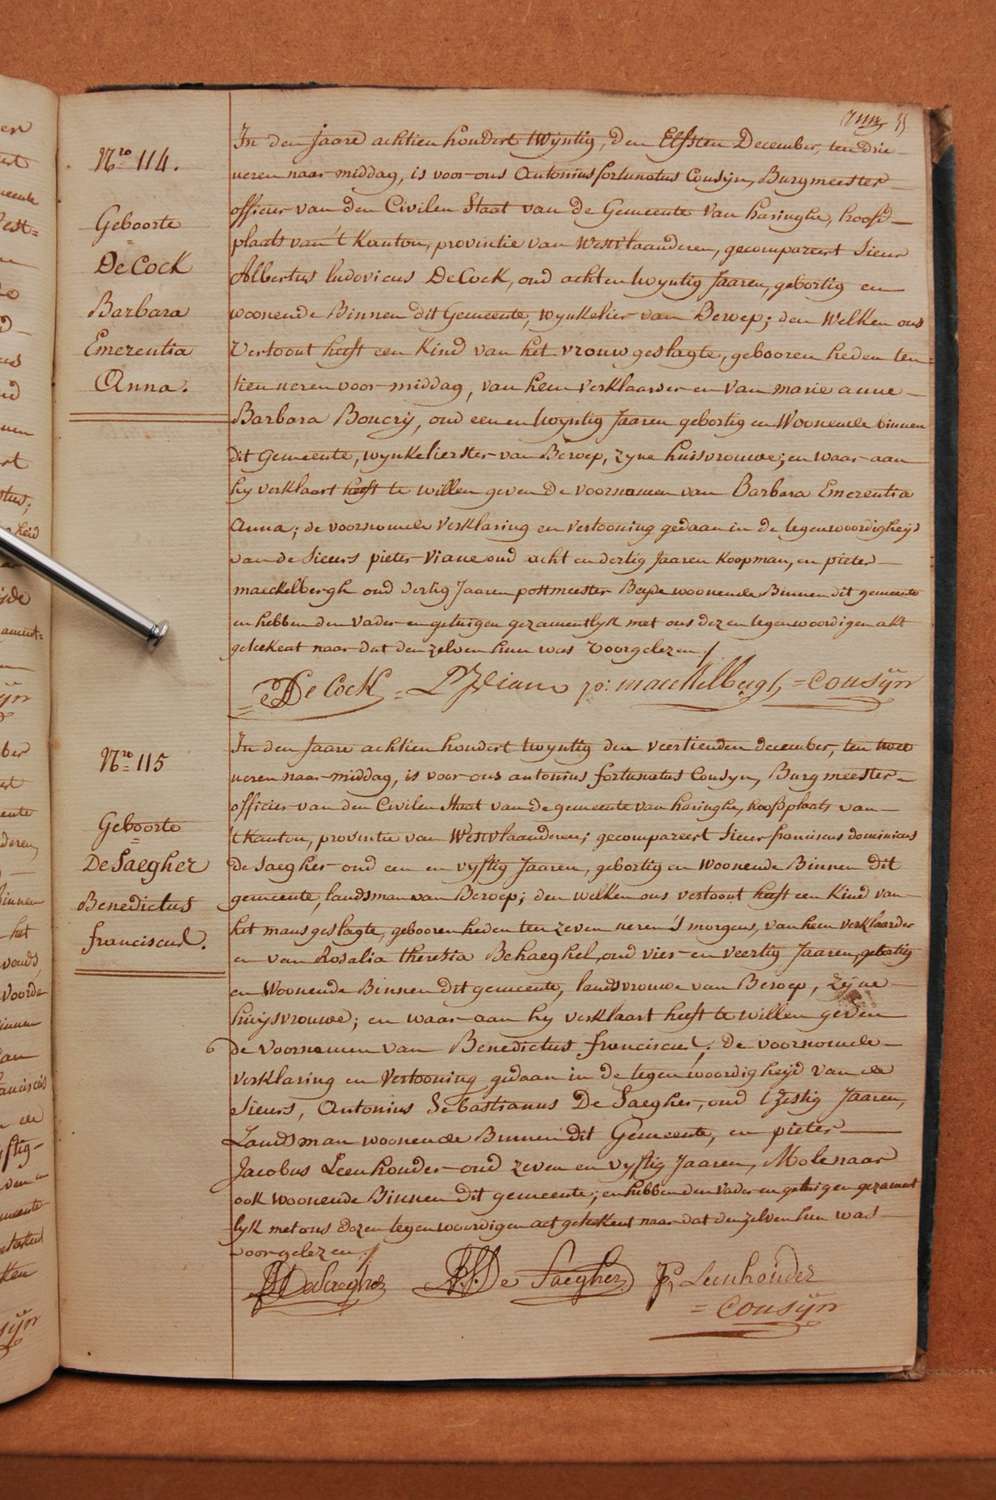 55
Nro 114.
Geboorte
De Cock
Barbara
Emerentia
Anna.
In den Jaare achtien hondert twyntig, den Elfsten December, ten drie
ueren naar-middag, is voor ons Antonius fortunatus Cousyn, Burgmeester
officier van den Civilen Staat van de Gemeente van haringhe, hoofd-
plaats van 't Kanton, provintie van Westvlaanderen, gecompareert Sieur
Albertus ludovicus De Cock, oud acht en twyntig Jaaren, gebortig en
woonende Binnen dit Gemeente, wynkelier van Beroep; den Welken ons
Vertoont heeft een Kind van het vrouw geslagte, gebooren heden ten
tien ueren voor-middag, van hem verklaarder en van marie anne
Barbara Boucry, oud een en twyntig Jaaren gebortig en Woonende binnen
dit Gemeente, wynkelierster van Beroep, zyne huisvrouwe; en waar-aan
hy verklaart heeft te willen geven De voornamen van Barbara Emerentia
Anna; de voornoemde verklaring en vertooning gedaan in de tegenwoordigheyd
van de Sieurs pieter Viane oud acht en dertig Jaaren koopman, en pieter
maeckelbergh oud dertig Jaaren postmeester Beyde woonende Binnen dit gemeente
en hebben den vader en getuigen gezamentlyk met ons dezen tegenwoordigen akt
geteekent naar dat den zelven hun was voorgelezen
De Cock = P Viane p: maeckelbergh = Cousÿn
Nro 115
Geboorte
De Saegher
Benedictus
franciscus.
In den Jaare achtien hondert twyntig den veertienden december, ten twee
ueren naar-middag, is voor ons antonius fortunatus Cousyn, Burgmeester
officier van den Civilen Staat van de gemeente van haringhe, hoofdplaats van
't Kanton, provintie van Westvlaanderen; gecompareert Sieur franciscus dominicus
De Saegher oud een en vyftig Jaaren, gebortig en woonende Binnen dit
gemeente, landsman van Beroep; den welken ons vertoont heeft een Kind van
het mans geslagte, gebooren heden ten zeven ueren 's morgens, van hem verklaarder
en van Rosalia theresia Behaeghel, oud vier en veertig Jaaren, gebortig
en Woonende Binnen dit gemeente, landsvrouwe van Beroep, zyne
huysvrouwe; en waar-aan hy verklaart heeft te willen geven
de voornamen van Benedictus franciscus; de voornoemde
verklaring en vertooning gedaan in de tegenwoordigheyd van de
Sieurs, Antonius Sebastianus De Saegher, oud tzestig Jaaren,
Landsman woonende Binnen dit Gemeente, en pieter
Jacobus Leenhouder oud zeven en vyftig Jaaren, Molenaar
ook woonende Binnen dit gemeente; en hebben den vader en getuigen gezament
lyk met ons dezen tegenwoordigen act geteekent naar dat den zelven hun was
voorgelezen
De Saegher De Saegher Leenhouder
= Cousÿn